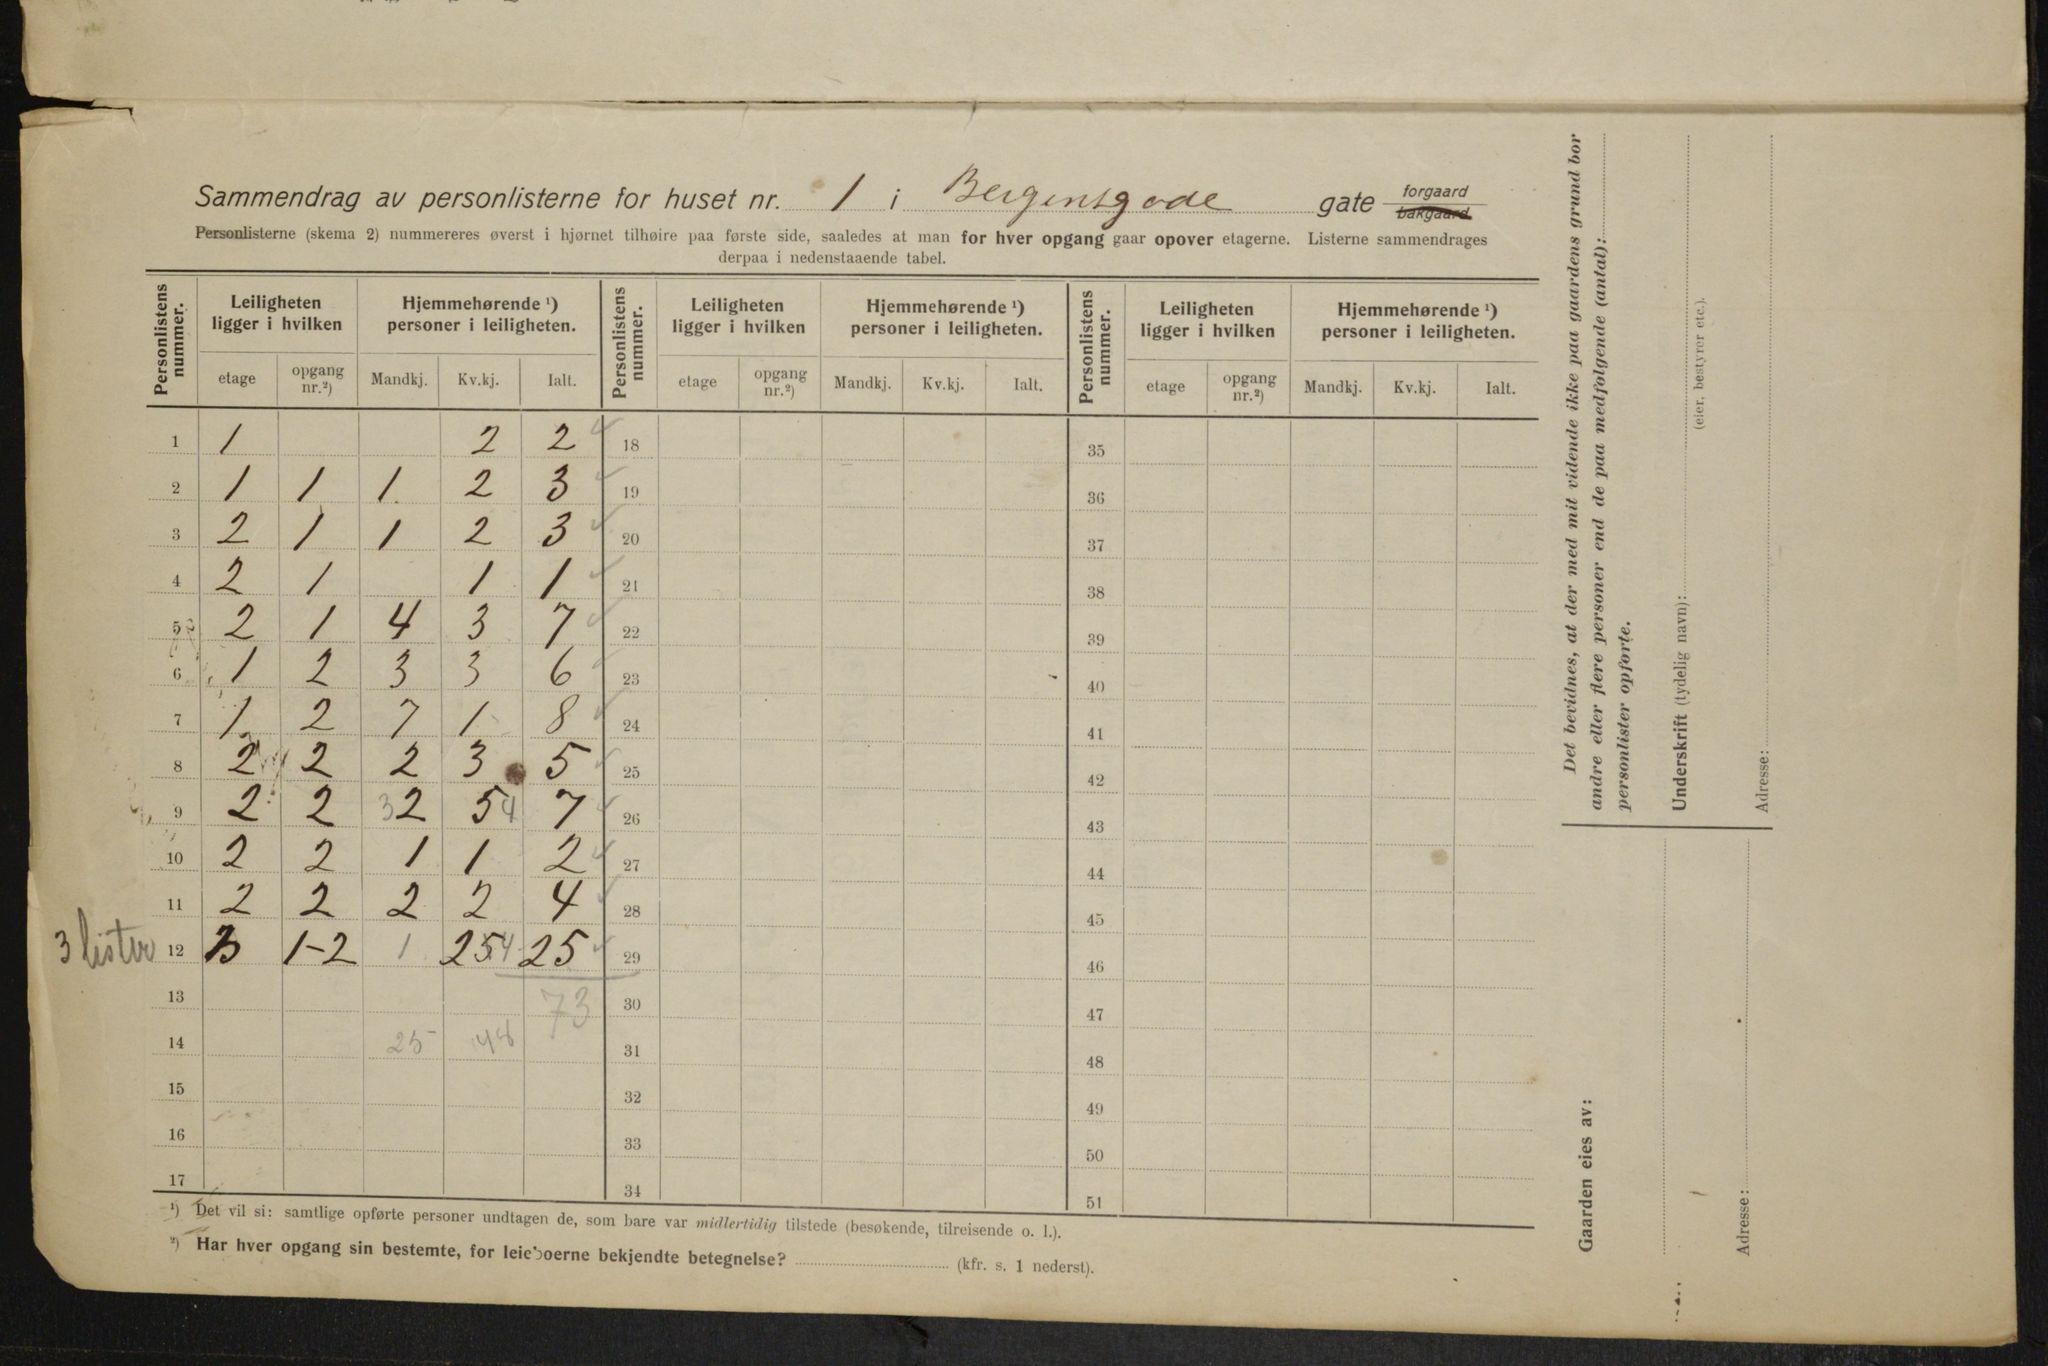 Sammendrag av personlisterne for huset nr. 1 i Bergensgade gate forgaard bakgaard
Personlisterne (skema 2) nummereres øverst i hjørnet tilhøire paa første side, saaledes at man for hver opgang gaar opover etagerne. Listerne sammendrages
derpaa i nedenstaaende tabel.
Personlistens nummer. Leiligheten ligger i hvilken Hjemmehørende ¹) personer i leiligheten. Personlistens nummer. Leiligheten ligger i hvilken Hjemmehørende ¹) personer i leiligheten. Personlistens nummer. Leiligheten ligger i hvilken Hjemmehørende ¹) personer i leiligheten.
etage opgang nr.²) Mandkj. Kv.kj. Ialt. etage opgang nr.²) Mandkj. Kv.kj. Ialt. etage opgang nr.²) Mandkj. Kv.kj. Ialt.
1 1 2 2 18 35
2 1 1 1 2 3 19 36
3 2 1 1 2 3 20 37
4 2 1 1 1 21 38
5 2 1 4 3 7 22 39
6 1 2 3 3 6 23 40
7 1 2 7 1 8 24 41
8 2 2 2 3 5 25 42
9 2 2 3 2 5 4 7 26 43
10 2 2 1 1 2 27 44
11 2 2 2 2 4 28 45
3 lister 12 3 1-2 1 25 4 25 29 46
13 73 30 47
14 25 48 31 48
15 32 49
16 33 50
17 34 51
¹) Det vil si: samtlige opførte personer undtagen de, som bare var midlertidig tilstede (besøkende, tilreisende o. l.).
²) Har hver opgang sin bestemte, for leieboerne bekjendte betegnelse? (kfr. s. 1 nederst).
Det bevidnes, at der med mit vidende ikke paa gaardens grund bor
andre eller flere personer end de paa medfølgende (antal):
personlister opførte.
Underskrift (tydelig navn):
(eier, bestyrer etc.).
Adresse:
Gaarden eies av:
Adresse: